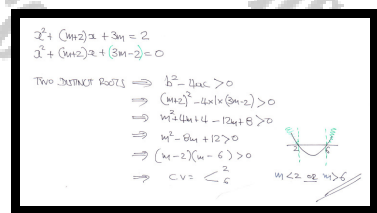 x² + (m+2)x + 3m = 2
x² + (m+2)x + (3m-2) = 0
TWO DISTINCT ROOTS ⇒ b² - 4ac > 0
⇒ (m+2)² - 4×1×(3m-2) > 0
⇒ m² + 4m + 4 - 12m + 8 > 0
⇒ m² - 8m + 12 > 0
⇒ (m-2)(m-6) > 0
⇒ C.V = < 2 6
2 6
m < 2 or m > 6